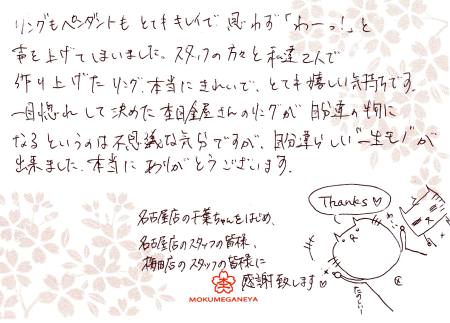 リングもペンダントも とてもキレイで 思わず「わーっ！」と
声を上げてしまいました。スタッフの方々と私達2人で
作り上げた リング、本当にきれいで、とても嬉しい気持ちです。
一目惚れして決めた杢目金屋さんのリングが 自分達の物に
なるというのは不思議な気分ですが、自分達らしい"一生モノ"が
出来ました。本当に ありがとうございます。
名古屋店の千葉ちゃんをはじめ、
名古屋店のスタッフの皆様、
梅田店のスタッフの皆様に
感謝致します♡
Thanks♡
MOKUMEGANEYA